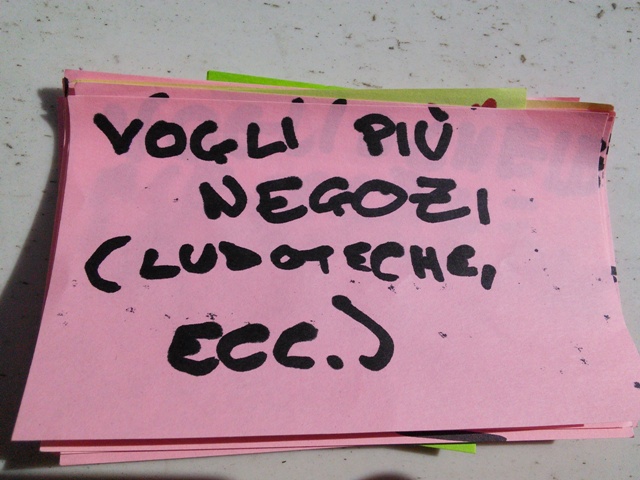 VOGLI PIÙ
NEGOZI
(LUDOTECHE,
ECC.)